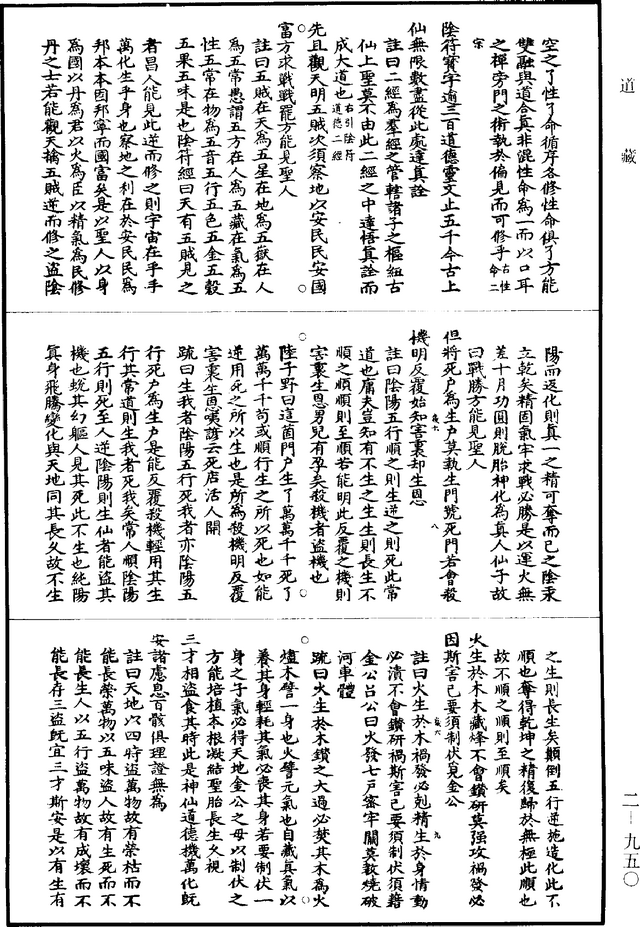 道藏
空之了性了命循序各修性命俱了方能
雙融與道合真非混性命為一而以口耳
之禪旁門之術執於偏見而可修乎右性命二
宗
陰符寶字逾三百道德靈文止五千今古上
仙無限數盡從此處達真詮
註曰二經為羣經之管轄諸子之樞紐古
仙上聖莫不由此二經之中達悟真詮而
成大道也右引陰符道德二經
先且觀天明五賊次須察地以安民民安國
富方求戰戰罷方能見聖人
註曰五賊在天為五星在地為五嶽在人
為五常愚謂五方在人為五藏在氣為五
性五常在物為五音五行五色五金五穀
五果五味是也陰符經曰天有五賊見之
者昌人能見此逆而修之則宇宙在乎手
萬化生乎身也察地之利在於安民民為
邦本本固邦寧而國富矣是以聖人以身
為國以丹為君以火為臣以精氣為民修
丹之士若能觀天擒五賊逆而修之盜陰
陽而返化則真一之精可奪而己之陰汞
立乾矣精固氣牢求戰必勝是以運火無
差十月功圓則脫胎神化為真人仙子故
曰戰勝方能見聖人
但將死戶為生戶莫執生門號死門若會殺
機明反覆始知害裏却生恩
註曰陰陽五行順之則生逆之則死此常
道也庸夫豈知有不生之生生則長生不
順之順順則至順若能明此反覆之機則
害裏生恩男兒有孕矣殺機者盜機也
陸子野曰這箇門戶生了萬萬千千死了
萬萬千千苟或順行生之所以死也如能
逆用死之所以生也是所為殺機明反覆
害裏生恩噫諺云死店活人開
疏曰生我者陰陽五行死我者亦陰陽五
行死戶為生戶是能反覆殺機輕用其生
行其常道則生我者死我矣常人順陰陽
五行則死至人逆陰陽則生仙者能盜其
機也蛻其幻軀人見其死此不生也純陽
真身飛騰變化與天地同其長久故不生
之生則長生矣顛倒五行逆施造化此不
順也奪得乾坤之精復歸於無極此順也
故不順之順則至順矣
火生於木木藏烽不會鑽研莫强攻禍發必
因斯害己要須制伏覓金公
註曰火生於木禍發必剋精生於身情動
必潰不會鑽研禍斯害己要須制伏須藉
金公呂公曰火發七戶密牢關莫教燒破
河車體
疏曰火生於木鑽之大過必焚其木為火
爐木譬一身也火譬元氣也自藏真氣以
養其身輕耗其氣必喪其身若要制伏一
身之子氣必得天地金公之母以制伏之
方能培植本根凝結聖胎長生久視
三才相盜食其時此是神仙道德機萬化既
安諸慮息百骸俱理證無為
註曰天地以四時盜萬物故有榮枯而不
能長榮萬物以五味盜人故有生死而不
能長生人以五行盜萬物故有成壞而不
能長存三盜既宜三才斯安是以有生有
二-九五〇